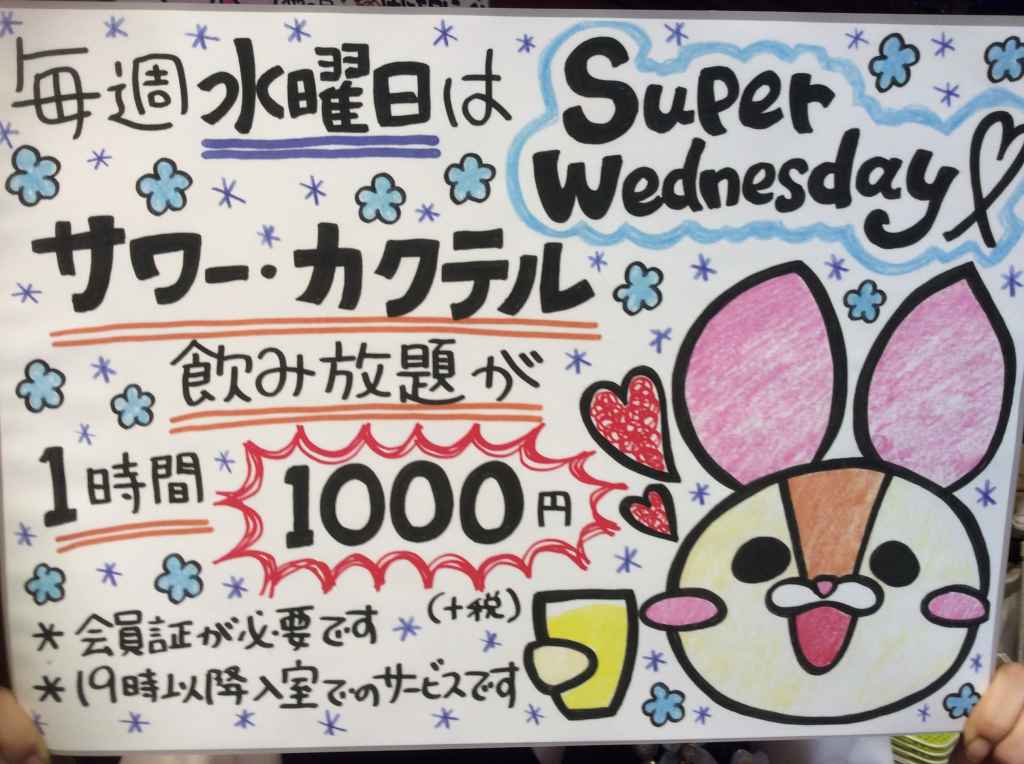 毎週水曜日は
Super
Wednesday
サワー・カクテル
飲み放題が
1時間
1000円
(+税)
* 会員証が必要です
* 19時以降入室でのサービスです